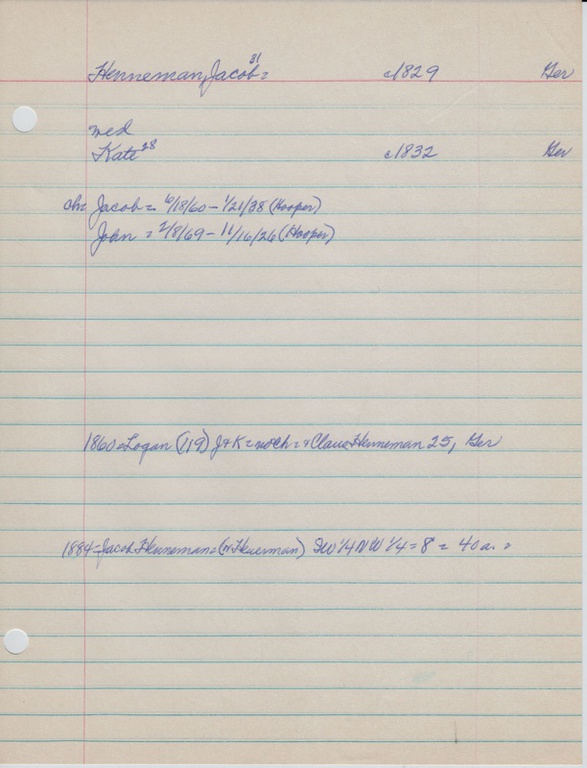 Henneman, Jacob = 31 c1829 Ger
med
Kate 28 c1832 Ger
ch = Jacob = 6/18/60 - 1/21/38 (Hooper)
John = 2/8/69 - 11/16/26 (Hooper)
1860 = Logan (119) J + K = no ch = + Claus Henneman 25, Ger
1884 = Jacob Henneman = (or Heuerman) SW 1/4 NW 1/4 = 8 = 40 a. =